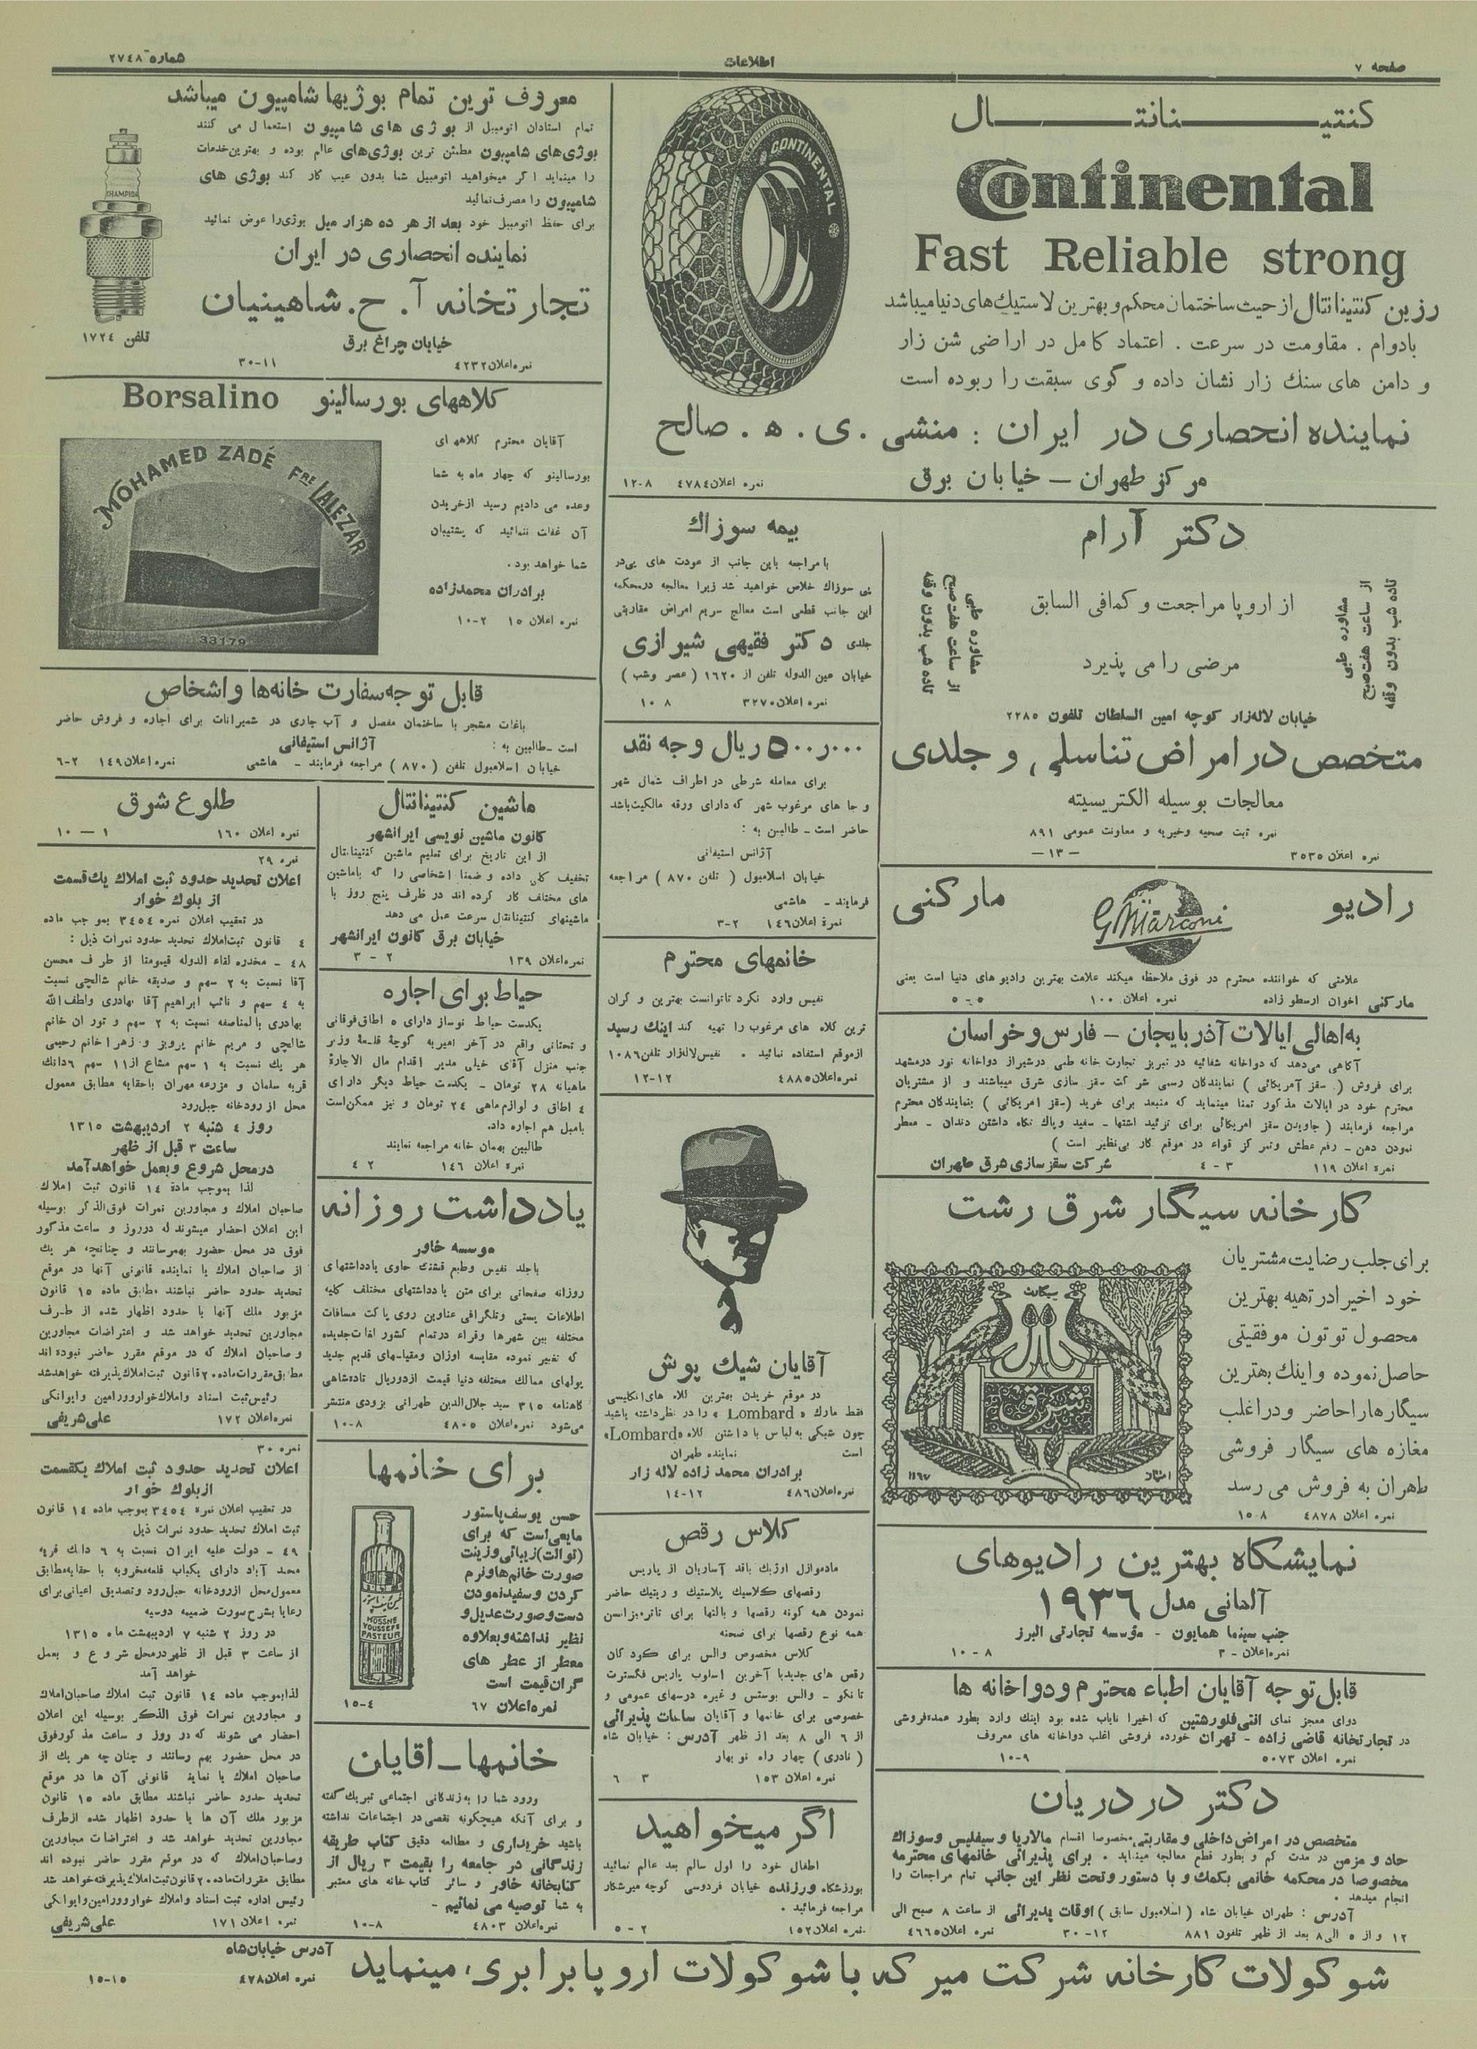 صفحه ۷
اطلاعات
شماره ۲۷۴۸
کنتیــنانتــال
Continental
Fast Reliable strong
رزین کنتینانتال از حیث ساختمان محکم و بهترین لاستیك های دنیا میباشد
بادوام . مقاومت در سرعت . اعتماد کامل در اراضی شن زار
و دامن های سنك زار نشان داده و گوی سبقت را ربوده است
نماینده انحصاری در ایران : منشی . ی . ه . صالح
مرکز طهران – خیابان برق
نمره اعلان ۴۷۸۴ ۸-۱۲
CONTINENTAL
معروف ترین تمام بوژیها شامپیون میباشد
تمام استادان اتومبیل از بوژی های شامپیون استعمال می کنند
بوژی‌های شامپیون مطمئن ترین بوژی‌های عالم بوده و بهترین خدمات
را مینماید اگر میخواهید اتومبیل شما بدون عیب کار کند بوژی های
شامپیون را مصرف نمائید
برای حفظ اتومبیل خود بعد از هر ده هزار میل بوژی را عوض نمائید
نماینده انحصاری در ایران
تجارتخانه آ. ح. شاهینیان
خیابان چراغ برق
تلفن ۱۷۲۴
نمره اعلان ۴۲۳۲ ۱۱-۳۰
CHAMPION
کلاههای بورسالینو Borsalino
آقایان محترم کلاههای
بورسالینو که چهار ماه به شما
وعده می دادیم رسید از خریدن
آن غفلت ننمائید که پشتیبان
شما خواهد بود .
برادران محمدزاده
نمره اعلان ۱۵ ۲-۱۰
MOHAMED ZADÉ FRE LALEZAR
33179
قابل توجه سفارت خانه‌ها و اشخاص
باغات مشجر با ساختمان مفصل و آب جاری در شمیرانات برای اجاره و فروش حاضر
است - طالبین به : آژانس استیفانی
خیابان اسلامبول تلفن ( ۸۷۰ ) مراجعه فرمایند - هاشمی نمره اعلان ۱۴۹ ۲-۶
دکتر آرام
از اروپا مراجعت و کمافی السابق
مرضی را می پذیرد
مشاوره طبی
از ساعت هفت صبح
تا ده شب بدون وقفه
مشاوره طبی
از ساعت هفت صبح
تا ده شب بدون وقفه
خیابان لاله‌زار کوچه امین السلطان تلفون ۲۲۸۵
متخصص در امراض تناسلی و جلدی
معالجات بوسیله الکتریسیته
نمره ثبت صحیه و خیریه و معاونت عمومی ۸۹۱
نمره اعلان ۳۵۳۵ -۱۳-
بیمه سوزاك
با مراجعه باین جانب از عودت های پی‌در
پی سوزاك خلاص خواهید شد زیرا معالجه در محکمه
این جانب قطعی است معالج سریع امراض مقاربتی
جلدی دکتر فقیهی شیرازی
خیابان عین الدوله تلفن از ۱۶۲۰ ( عصر و شب )
نمره اعلان ۳۲۷۰ ۸ ۱۰
۵۰۰ر۰۰۰ ریال وجه نقد
برای معامله شرطی در اطراف شمال شهر
و جا های مرغوب شهر که دارای ورقه مالکیت باشد
حاضر است - طالبین به :
آژانس استیفانی
خیابان اسلامبول ( تلفن ۸۷۰ ) مراجعه
فرمایند - هاشمی
نمرة اعلان ۱۴۶ ۲-۳
خانمهای محترم
نفیس وارد نکرد تا توانست بهترین و گران
ترین کلاه های مرغوب را تهیه کند اینك رسید
از موقع استفاده نمائید . نفیس لاله‌زار تلفن ۱۰۸۶
نمره اعلان ۴۸۸۵ ۱۲-۱۲
طلوع شرق
نمره اعلان ۱۶۰ ۱ – ۱۰
ماشین کنتینانتال
کانون ماشین نویسی ایرانشهر
از این تاریخ برای تعلیم ماشین کنتینانتال
تخفیف کلی داده و ضمنا اشخاصی را که با ماشین
های مختلف کار کرده اند در ظرف پنج روز با
ماشینهای کنتینانتال سرعت عمل می دهد
خیابان برق کانون ایرانشهر
نمره اعلان ۱۳۹ ۲ - ۳
حیاط برای اجاره
یکدست حیاط نوساز دارای ۵ اطاق فوقانی
و تحتانی واقع در آخر امیریه کوچه قلعه وزیر
جنب منزل آقای خیلی مدیر اقدام مال الاجارة
ماهیانه ۲۸ تومان - یکدست حیاط دیگر دارای
۴ اطاق و لوازم ماهی ۲۴ تومان و نیز ممکن است
بامبل هم اجاره داد.
طالبین بهمان خانه مراجعه نمایند
نمرة اعلان ۱۴۶ ۲ ۴
رادیو مارکنی
G Marconi
علامتی که خواننده محترم در فوق ملاحظه میکند علامت بهترین رادیو های دنیا است یعنی
مارکنی اخوان ارسطو زاده نمره اعلان ۱۰۰ ۵-۵
به اهالی ایالات آذربایجان – فارس و خراسان
آگاهی می‌دهد که دواخانه شفائیه در تبریز تجارت خانه طبی در شیراز دواخانه نور در مشهد
برای فروش ( سقز آمریکائی ) نمایندگان رسمی شرکت سقز سازی شرق میباشند و از مشتریان
محترم خود در ایالات مذکور تمنا مینماید که منبعد برای خرید (سقز امریکائی ) بنمایندگان محترم
مراجعه فرمایند ( جاویدن سقز امریکائی برای تزئید اشتها - سفید و پاك نگاه داشتن دندان - معطر
نمودن دهن - رفع عطش و تمرکز قواء در موقع کار بی‌نظیر است )
نمره اعلان ۱۱۹ ۳ - ۴ شرکت سقزسازی شرق طهران
نمره ۲۹
اعلان تحدید حدود ثبت املاك یك قسمت
از بلوك خوار
در تعقیب اعلان نمره ۳۴۵۴ بموجب ماده
۴ قانون ثبت املاك تحدید حدود نمرات ذیل :
۴۸ - مخدره لقاء الدوله قیمومتا از طرف محسن
آقا نسبت به ۲ سهم و صدیقه خانم شالچی نسبت
به ۴ سهم و نائب ابراهیم آقا بهادری و لطف الله
بهادری بالمناصفه نسبت به ۲ سهم و توران خانم
شالچی و مریم خانم پرویز و زهرا خانم رحیمی
هر یك نسبت به ۱ سهم مشاع از ۱۱ سهم ۶ دانك
قریه سلمان و مزرعه مهران با حقابه مطابق معمول
محل از رودخانه حبل‌رود
روز ۴ شنبه ۲ اردیبهشت ۱۳۱۵
ساعت ۳ قبل از ظهر
در محل شروع و بعمل خواهد آمد
لذا بموجب مادة ۱۴ قانون ثبت املاك
صاحبان املاك و مجاورین نمرات فوق الذکر بوسیله
این اعلان احضار میشوند که در روز و ساعت مذکور
فوق در محل حضور بهمرسانند و چنانچه هر یك
از صاحبان املاك یا نماینده قانونی آنها در موقع
تحدید حدود حاضر نباشند مطابق ماده ۱۵ قانون
مزبور ملك آنها با حدود اظهار شده از طرف
مجاورین تحدید خواهد شد و اعتراضات مجاورین
و صاحبان املاك که در موقع مقرر حاضر نبوده اند
مطابق مقررات ماده ۲۰ قانون ثبت املاك پذیرفته خواهد شد
رئیس ثبت اسناد و املاك خوار و ورامین و ایوانکی
نمره اعلان ۱۷۲ علی شریفی
یادداشت روزانه
موسسه خاور
با جلد نفیس و طبع قشنك حاوی یادداشتهای
روزانه صفحاتی برای متن یادداشتهای مختلف کلیه
اطلاعات پستی و تلگرافی عناوین روی پاکت مسافات
مختلفه بین شهرها و قراء در تمام کشور لغات جدیده
که تغییر نموده مقایسه اوزان و مقیاسهای قدیم جدید
پولهای ممالك مختلفه دنیا قیمت از دو ریال تا ده شاهی
گاهنامه ۳۱۵ سید جلال الدین طهرانی بزودی منتشر
می‌شود نمره اعلان ۴۸۰۵ ۸-۱۰
آقایان شیك پوش
در موقع خریدن بهترین کلاه های انگلیسی
فقط مارك « Lombard » را در نظر داشته باشید
چون شیکی به لباس با داشتن کلاه «Lombard»
است نماینده طهران
برادران محمد زاده لاله زار
نمره اعلان ۴۸۶ ۱۲-۱۴
کارخانه سیگار شرق رشت
برای جلب رضایت مشتریان
خود اخیرا در تهیه بهترین
محصول توتون موفقیتی
حاصل نموده و اینك بهترین
سیگارها را حاضر و در اغلب
مغازه های سیگار فروشی
طهران به فروش می رسد
نمره اعلان ۴۸۷۸ ۸-۱۵
سیگارت
شرق
نمایشگاه بهترین رادیوهای
آلمانی مدل ۱۹۳۶
جنب سینما همایون - مؤسسه تجارتی البرز
نمره اعلان - ۳ ۸ - ۱۰
قابل توجه آقایان اطباء محترم و دواخانه ها
دوای معجز نمای انتی فلورشتین که اخیرا نایاب شده بود اینك وارد بطور عمده فروشی
در تجارتخانه قاضی زاده - تهران خورده فروشی اغلب دواخانه های معروف
نمره اعلان ۵۰۷۳ ۹-۱۰
دکتر دردریان
متخصص در امراض داخلی و مقاربتی مخصوصا اقسام مالاریا و سیفلیس و سوزاك
حاد و مزمن در مدت کم و بطور قطع معالجه مینماید . برای پذیرائی خانمهای محترمه
مخصوصا در محکمه خانمی بکمك و با دستور و تحت نظر این جانب تمام مراجعات را
انجام میدهد .
آدرس : طهران خیابان شاه ( اسلامبول سابق ) اوقات پذیرائی از ساعت ۸ صبح الی
۱۲ و از ۵ الی ۸ بعد از ظهر تلفون ۸۸۱ ۱۲-۳۰ نمره اعلان ۴۶۶۵
کلاس رقص
مادموازل اوژنك باقد آساریان از پاریس
رقصهای کلاسیك پلاستیك و ریتیك حاضر
نمودن همه گونه رقصها و بالتها برای تاتره بزانس
همه نوع رقصها برای صحنه
کلاس مخصوص والس برای کودکان
رقص های جدید با آخرین اسلوب پاریس فگسترت
تانگو - والس بوستس و غیره درسهای عمومی و
خصوصی برای خانمها و آقایان ساعات پذیرائی
از ۶ الی ۸ بعد از ظهر آدرس : خیابان شاه
( نادری ) چهار راه نوبهار
نمره اعلان ۱۵۳ ۳ ۶
اگر میخواهید
اطفال خود را اول سالم بعد عالم نمائید
بورزشگاه ورزنده خیابان فردوسی کوچه میرشکار
مراجعه فرمائید .
نمره اعلان ۱۵۲ ۲ - ۵
برای خانمها
حسن یوسف پاستور
مایعی است که برای
(توالت) زیبائی و زینت
صورت خانم ها و نرم
کردن و سفید نمودن
دست و صورت عدیل و
نظیر نداشته و بعلاوه
معطر از عطر های
گران قیمت است
نمره اعلان ۶۷ ۴-۱۵
HOSSNE
YOUSSEFE
PASTEUR
خانمها - آقایان
ورود شما را به زندگانی اجتماعی تبریك گفته
و برای آنکه هیچگونه نقصی در اجتماعات نداشته
باشید خریداری و مطالعه دقیق کتاب طریقه
زندگانی در جامعه را بقیمت ۳ ریال از
کتابخانه خاور و سائر کتاب خانه های معتبر
به شما توصیه می نمائیم -
نمره اعلان ۴۸۰۳ ۸-۱۰
نمره ۳۰
اعلان تحدید حدود ثبت املاك یکقسمت
از بلوك خوار
در تعقیب اعلان نمره ۳۴۵۴ بموجب ماده ۱۴ قانون
ثبت املاك تحدید حدود نمرات ذیل
۴۹ - دولت علیه ایران نسبت به ۶ دانك قریه
محمد آباد دارای یکباب قلعه مخروبه با حقابه مطابق
معمول محل از رودخانه حبل‌رود و تصدیق اعیانی برای
رعایا بشرح صورت ضمیمه دوسیه
در روز ۲ شنبه ۷ اردیبهشت ماه ۱۳۱۵
از ساعت ۳ قبل از ظهر در محل شروع و بعمل
خواهد آمد
لذا بموجب ماده ۱۴ قانون ثبت املاك صاحبان املاك
و مجاورین نمرات فوق الذکر بوسیله این اعلان
احضار می شوند که در روز و ساعت مذکور فوق
در محل حضور بهم رسانند و چنانچه هر یك از
صاحبان املاك یا نماینده قانونی آن ها در موقع
تحدید حدود حاضر نباشند مطابق ماده ۱۵ قانون
مزبور ملك آن ها با حدود اظهار شده از طرف
مجاورین تحدید خواهد شد و اعتراضات مجاورین
و صاحبان املاك که در موقع مقرر حاضر نبوده اند
مطابق مقررات ماده ۲۰ قانون ثبت املاك پذیرفته خواهد شد
رئیس اداره ثبت اسناد و املاك خوار و ورامین و ایوانکی
نمره اعلان ۱۷۱ علی شریفی
شوکولات کارخانه شرکت میر که با شوکولات اروپا برابری مینماید
آدرس خیابان شاه
نمره اعلان ۴۷۸ ۱۵-۱۵